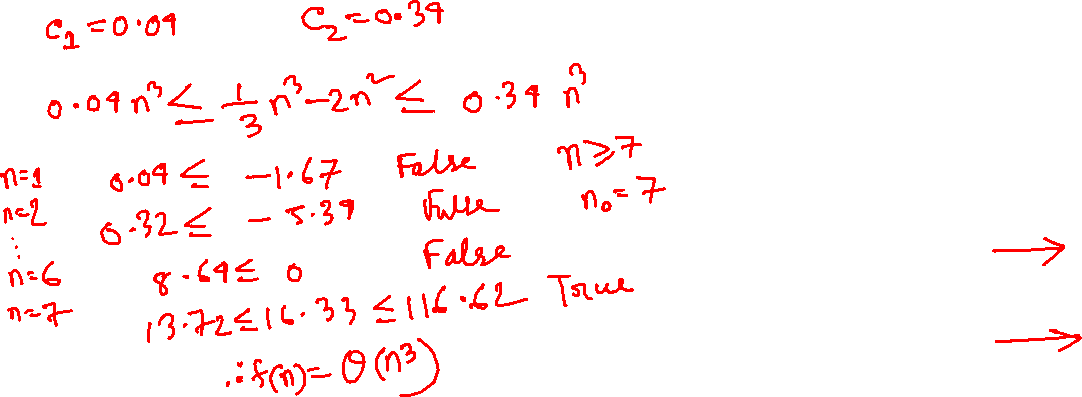 C₁ = 0.04 C₂ = 0.34
0.04 n³ ≤ 1/3 n³ - 2n² ≤ 0.34 n³
n=1 0.04 ≤ -1.67 False n ≥ 7
n=2 0.32 ≤ -5.34 False n₀ = 7
⋮
n=6 8.64 ≤ 0 False →
n=7 13.72 ≤ 16.33 ≤ 116.62 True
∴ f(n) = θ(n³) →